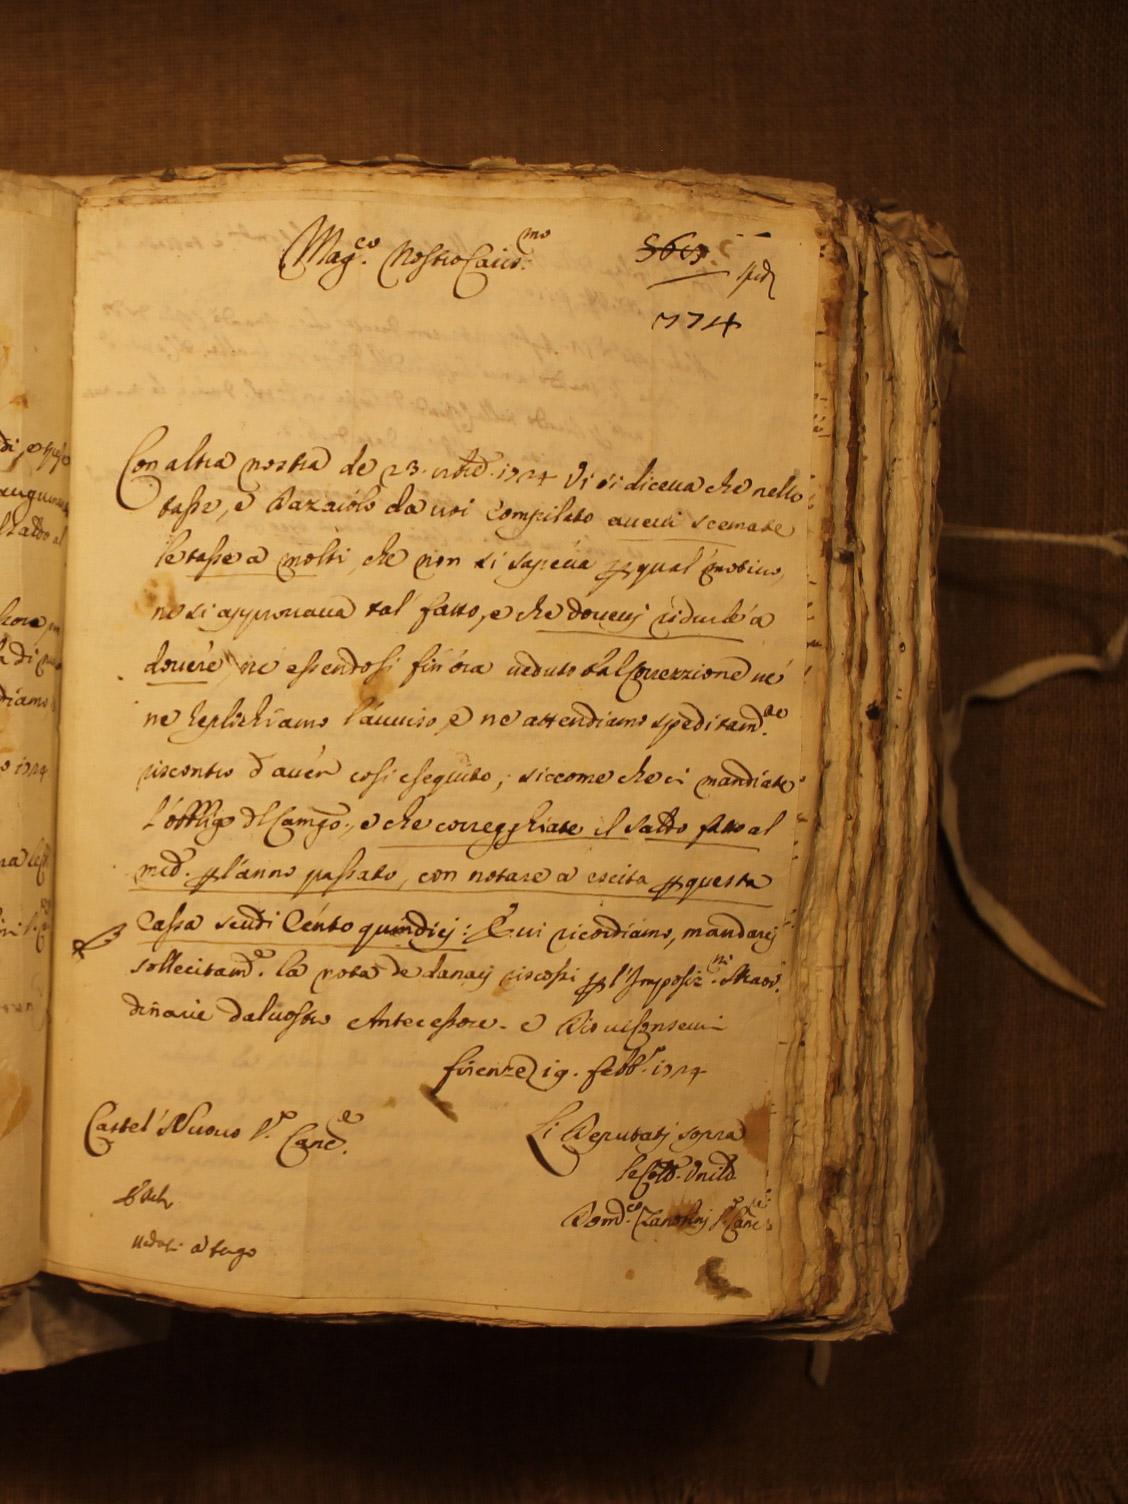 Mag.co Nostro Cariss.mo
774
Con altra nostra de 23. 1724 Vi si diceva che nelle
tasse, e Dazaiolo da voi compilato avevi scemate
le tasse a molti, che non si sapeva p qual motivo,
ne si approvava tal fatto, e che dovevj ridurle a
dovere, ne essendosi fin'ora veduto tal Correzzione ve
ne replichiamo l'avviso, e ne attendiamo speditam.te
riscontro d'aver così eseguito, siccome che ci mandiate
l'obblig.o del Camgo., e che corregghiate il saldo fatto al
med. p l'anno passato, con notare a escita p questa
Cassa scudi Cento quindicj: E vi ricordiamo, mandarcj
sollecitam.e la nota de danarj riscossi p l'Imposiz.ni Straor.
dinarie dal vostro Antecessore. e Dio vi conservi
firenze 19. febb.o 1724
Castel Nuovo V. Canc.e
Li Deputatj sopra
Dom.co Zanobinj V. Canc.e